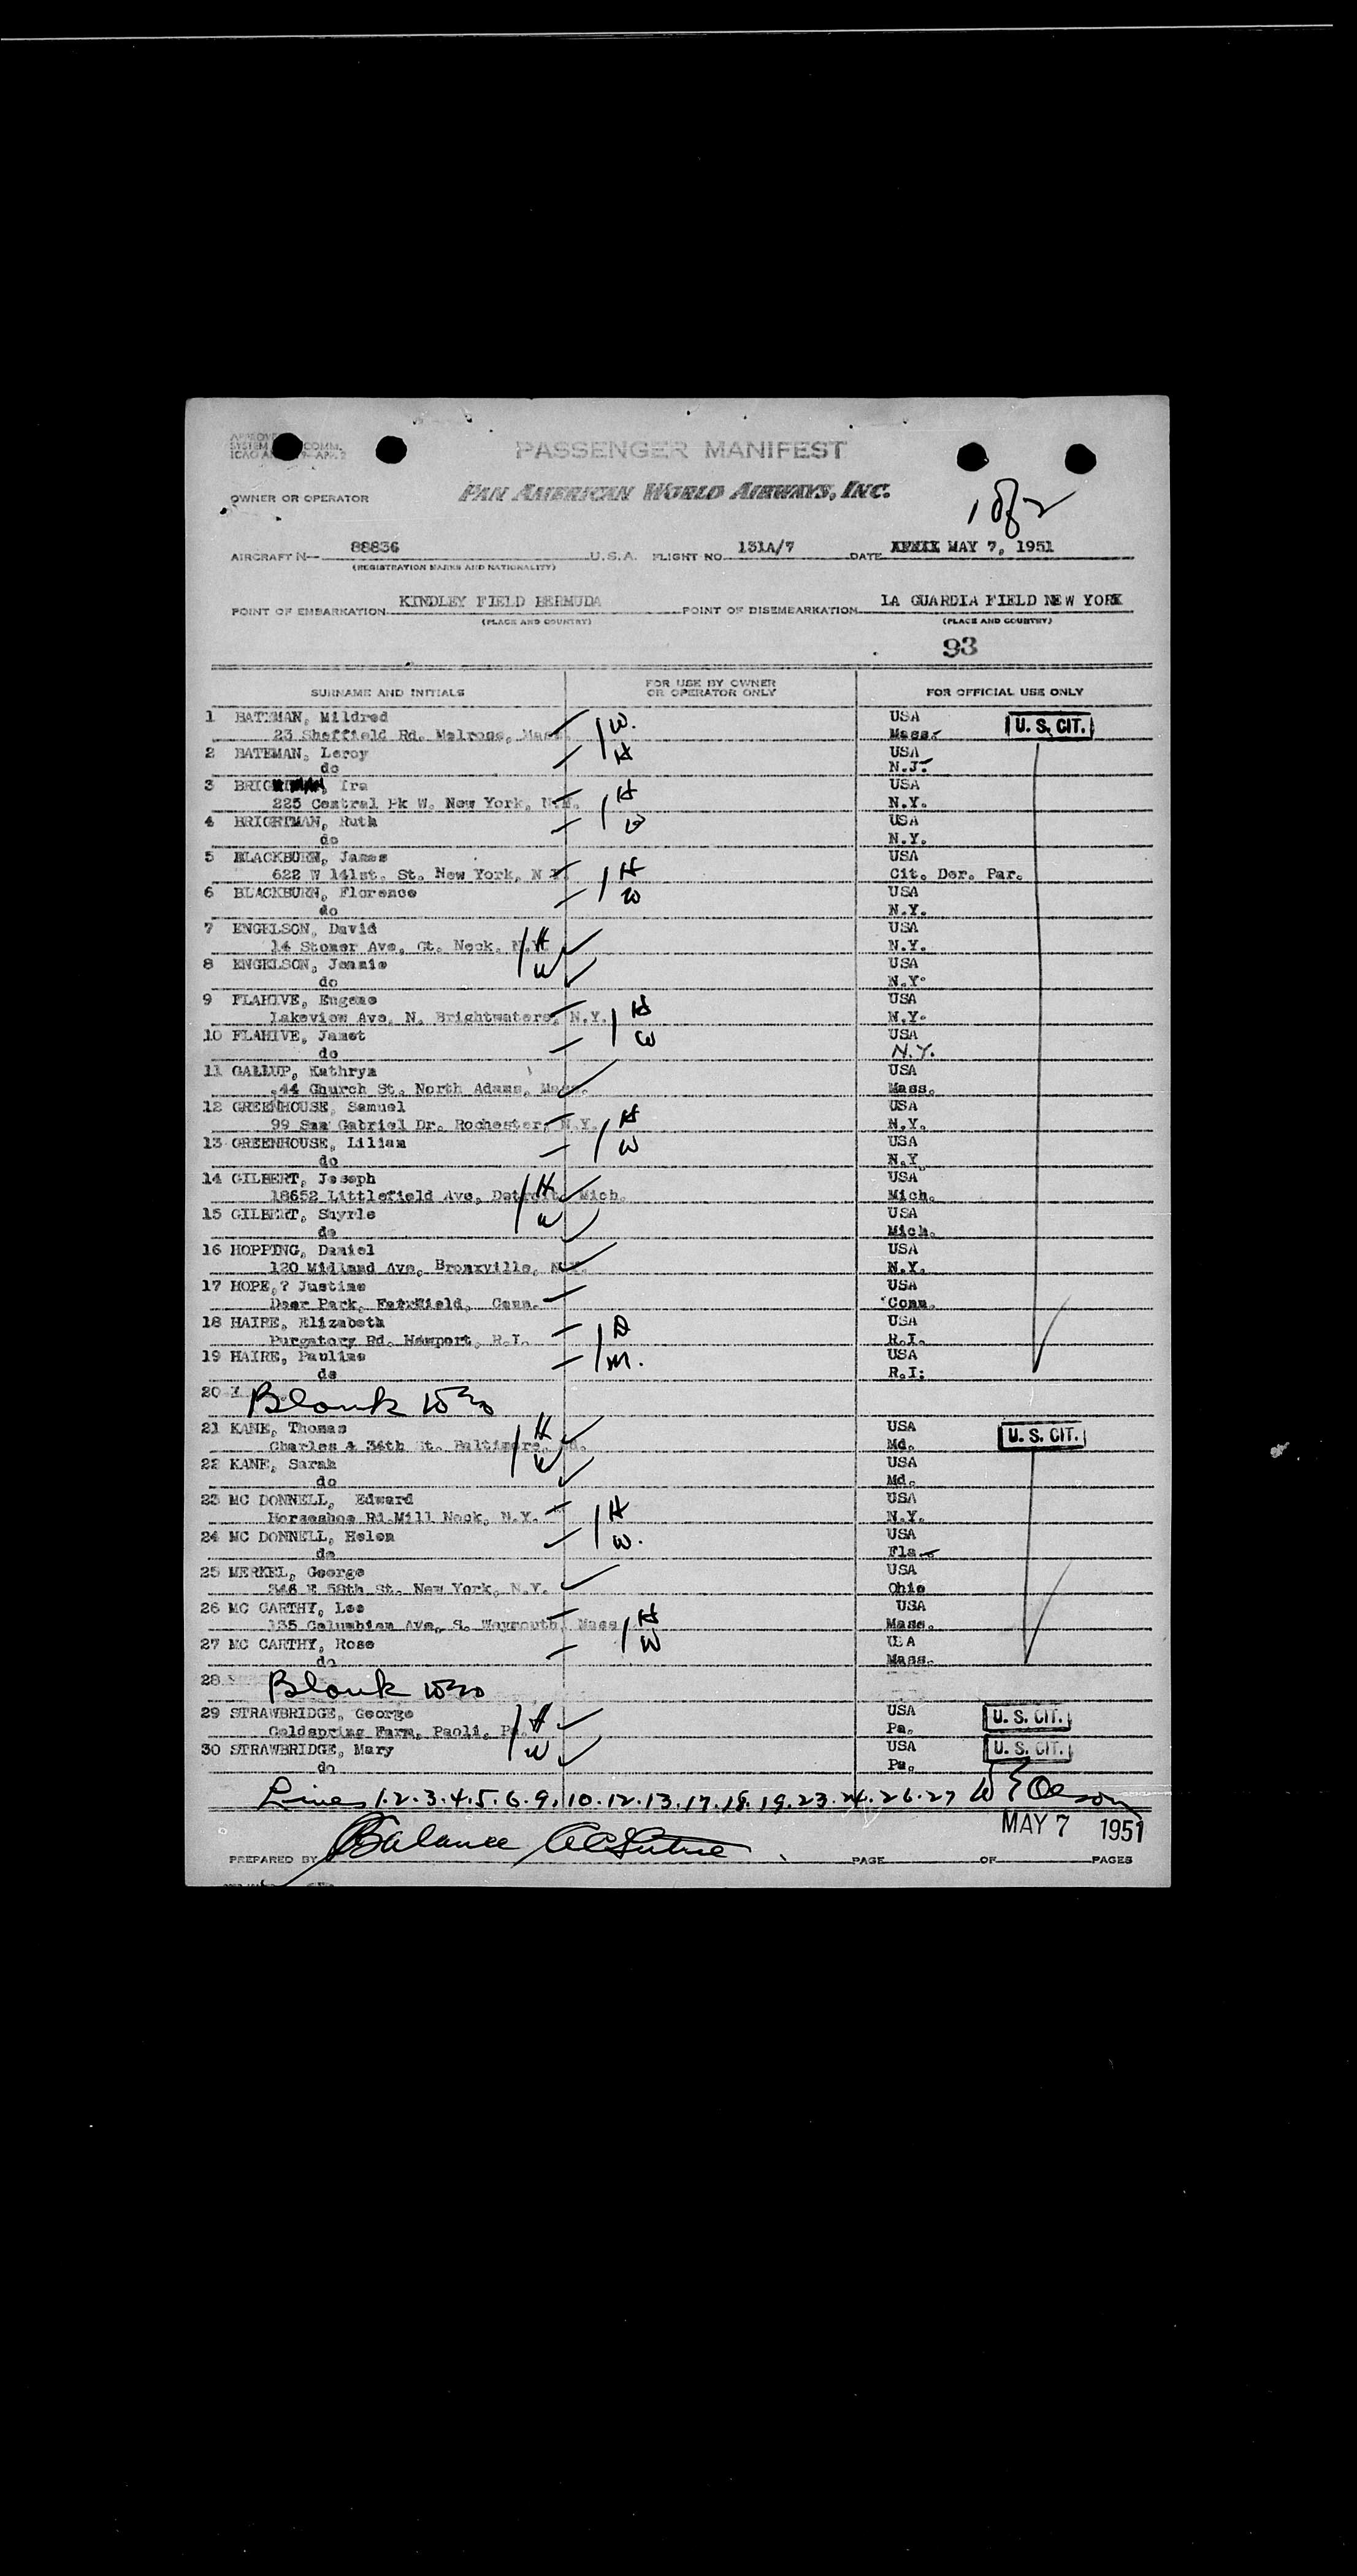 PASSENGER MANIFEST
OWNER OR OPERATOR PAN AMERICAN WORLD AIRWAYS, INC.
1 of 2
AIRCRAFT N— 88836 U.S.A. FLIGHT NO. 131A/7 DATE MAY 7, 1951
(REGISTRATION MARKS AND NATIONALITY)
POINT OF EMBARKATION KINDLEY FIELD BERMUDA POINT OF DISEMBARKATION LA GUARDIA FIELD NEW YORK
(PLACE AND COUNTRY) (PLACE AND COUNTRY)
93
SURNAME AND INITIALS FOR USE BY OWNER OR OPERATOR ONLY FOR OFFICIAL USE ONLY
1 BATEMAN, Mildred W. USA U. S. CIT.
23 Sheffield Rd. Melrose, Mass. Mass.
2 BATEMAN, Leroy H USA
do N.J.
3 BRIG, Ira H USA
225 Central Pk W. New York, N.Y. N.Y.
4 BRIGHTMAN, Ruth W USA
do N.Y.
5 BLACKBURN, James H USA
622 W 141st. St. New York, N Y. Cit. Der. Par.
6 BLACKBURN, Florence W USA
do N.Y.
7 ENGELSON, David H USA
14 Stoner Ave, Gt. Neck, N.Y. N.Y.
8 ENGELSON, Jennie W USA
do N.Y.
9 FLAHIVE, Eugene H USA
Lakeview Ave, N. Brightwaters, N.Y. N.Y.
10 FLAHIVE, Janet W USA
do N.Y.
11 GALLUP, Kathryn USA
44 Church St. North Adams, Mass. Mass.
12 GREENHOUSE, Samuel H USA
99 San Gabriel Dr. Rochester, N.Y. N.Y.
13 GREENHOUSE, Lilian W USA
do N.Y.
14 GILBERT, Joseph H USA
18652 Littlefield Ave, Detroit, Mich. Mich.
15 GILBERT, Shyrle W USA
do Mich.
16 HOPPING, Daniel USA
120 Midland Ave, Bronxville, N.Y. N.Y.
17 HOPE,? Justine USA
Deer Park, Fairfield, Conn. Conn.
18 HAIRE, Elizabeth D USA
Purgatory Rd. Newport, R.I. R.I.
19 HAIRE, Pauline M. USA
do R.I.
20 Blank
21 KANE, Thomas H USA U. S. CIT.
Charles & 34th St. Baltimore, Md. Md.
22 KANE, Sarah W USA
do Md.
23 MC DONNELL, Edward H USA
Horseshoe Rd.Mill Neck, N.Y. N.Y.
24 MC DONNELL, Helen W. USA
do Fla
25 MERKEL, George USA
346 E 58th St. New York, N.Y. Ohio
26 MC CARTHY, Lee H USA
135 Columbian Ave, S. Weymouth, Mass Mass.
27 MC CARTHY, Rose W USA
do Mass.
28 Blank
29 STRAWBRIDGE, George H USA U. S. CIT.
Coldspring Farm, Paoli, Pa. Pa.
30 STRAWBRIDGE, Mary W USA U. S. CIT.
do Pa.
Lines 1.2.3.4.5.6.9.10.12.13.17.18.19.23.24.26.27 W E Olson
MAY 7 1951
Balance
PREPARED BY PAGE OF PAGES